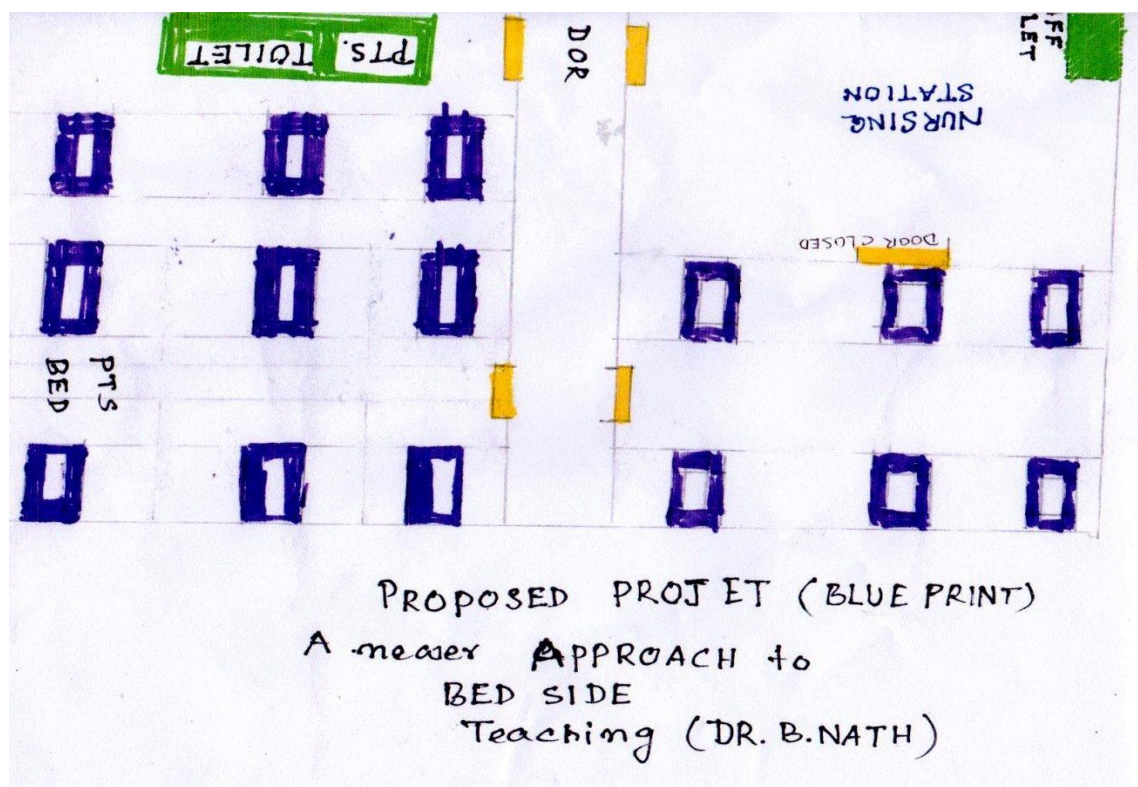 PTS. TOILET
DOR
FF
LET
NURSING
STATION
DOOR CLOSED
PTS
BED
PROPOSED PROJET (BLUE PRINT)
A newer APPROACH to
BED SIDE
Teaching (DR. B.NATH)